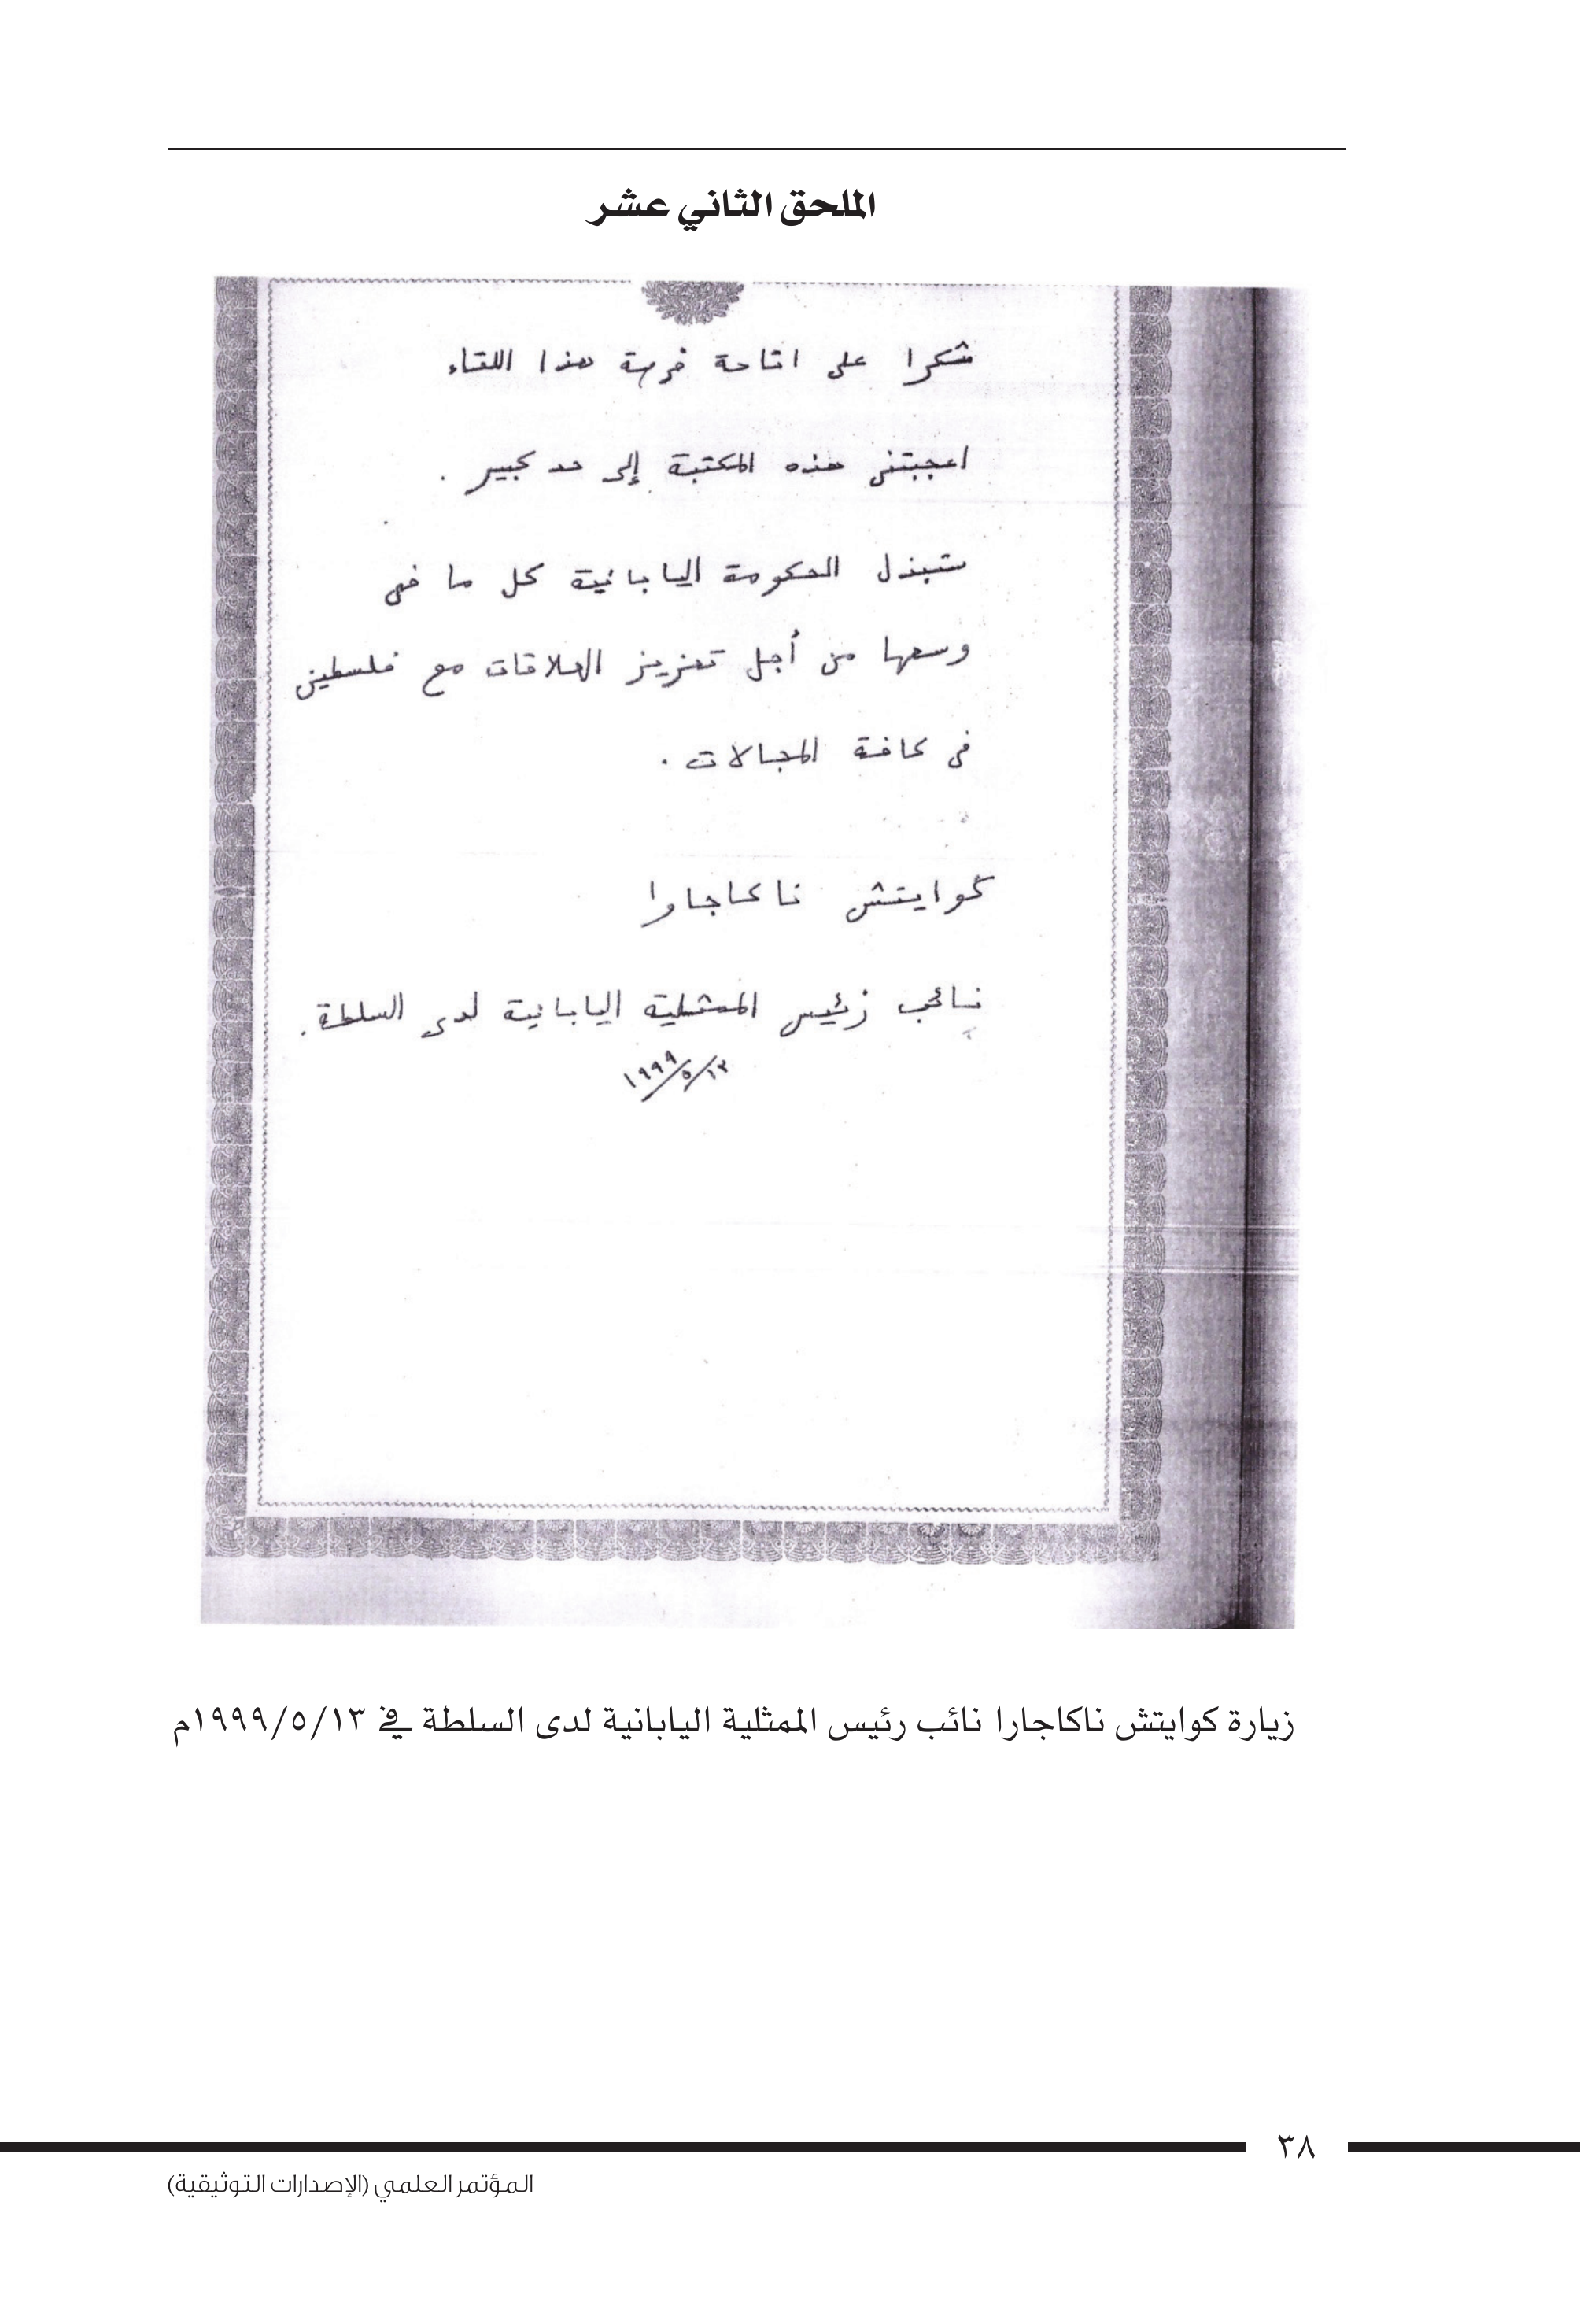 الملحق الثاني عشر
شكرا على اتاحة فرصة هذا اللقاء
اعجبتنى هذه المكتبة إلى حد كبير .
ستبذل الحكومة اليابانية كل ما فى
وسعها من أجل تعزيز العلاقات مع فلسطين
فى كافة المجالات .
كوايتش ناكاجاوا
نائب رئيس الممثلية اليابانية لدى السلطة .
١٩٩٩/٥/١٣
زيارة كوايتش ناكاجارا نائب رئيس الممثلية اليابانية لدى السلطة في ١٩٩٩/٥/١٣م
٣٨
المؤتمر العلمي (الإصدارات التوثيقية)